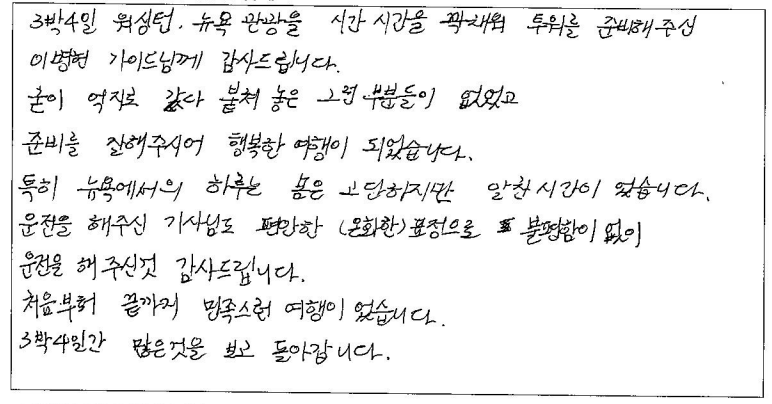 3박4일 워싱턴. 뉴욕 관광을 시간 시간을 꽉채워 투워를 준비해주신
이병현 가이드님께 감사드립니다.
굳이 억지로 갖다 붙쳐 놓은 그런 부분들이 없었고
준비를 잘해주시어 행복한 여행이 되었습니다.
특히 뉴욕에서의 하루는 몸은 고단하지만 알찬 시간이 었습니다.
운전을 해주신 기사님도 편안한 (온화한) 표정으로 불평함이 없이
운전을 해 주신것 감사드립니다.
처음부터 끝까지 만족스런 여행이 었습니다.
3박4일간 많은것을 보고 돌아갑니다.